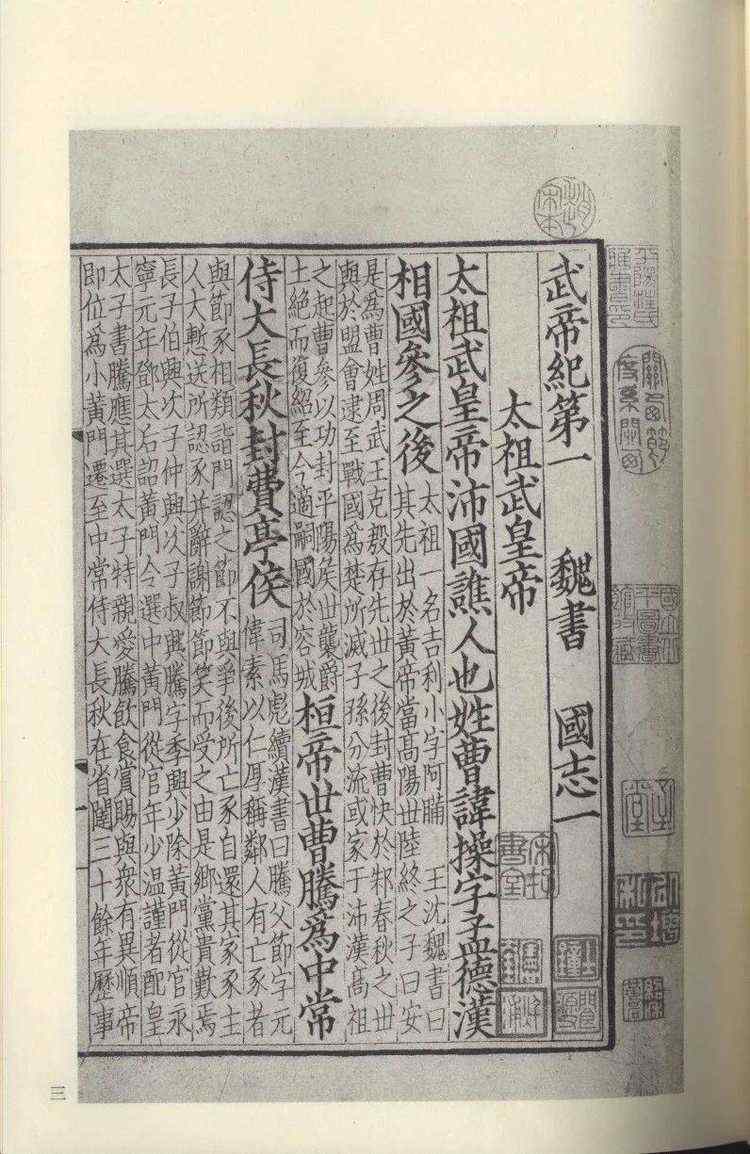 武帝紀第一 魏書 國志一
太祖武皇帝
太祖武皇帝沛國譙人也姓曹諱操字孟德漢
相國參之後
太祖一名吉利小字阿瞞 王沈魏書曰
其先出於黃帝當高陽世陸終之子曰安
是為曹姓周武王克殷存先世之後封曹俠於邾春秋之世
與於盟會逮至戰國爲楚所滅子孫分流或家于沛漢高祖
之起曹參以功封平陽侯世襲爵
土絶而復紹至今適嗣國於容城
桓帝世曹騰爲中常
侍大長秋封費亭侯
司馬彪續漢書曰騰父節字元
偉素以仁厚稱鄰人有亡豕者
與節豕相類詣門認之節不與爭後所亡豕自還其家豕主
人大慙送所認豕并辭謝節節笑而受之由是鄉黨貴歎焉
長子伯興次子仲興次子叔興騰字季興少除黃門從官永
寧元年鄧太后詔黃門令選中黃門從官年少温謹者配皇
太子書騰應其選太子特親愛騰飲食賞賜與衆有異順帝
即位爲小黃門遷至中常侍大長秋在省闥三十餘年歷事
三